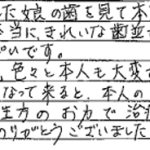 た娘の歯を見て本
当に、きれいな歯並
ぱいです。
、色々と本人も大変
なって来ると、本人の
生方のお力で治
のりがとうございました